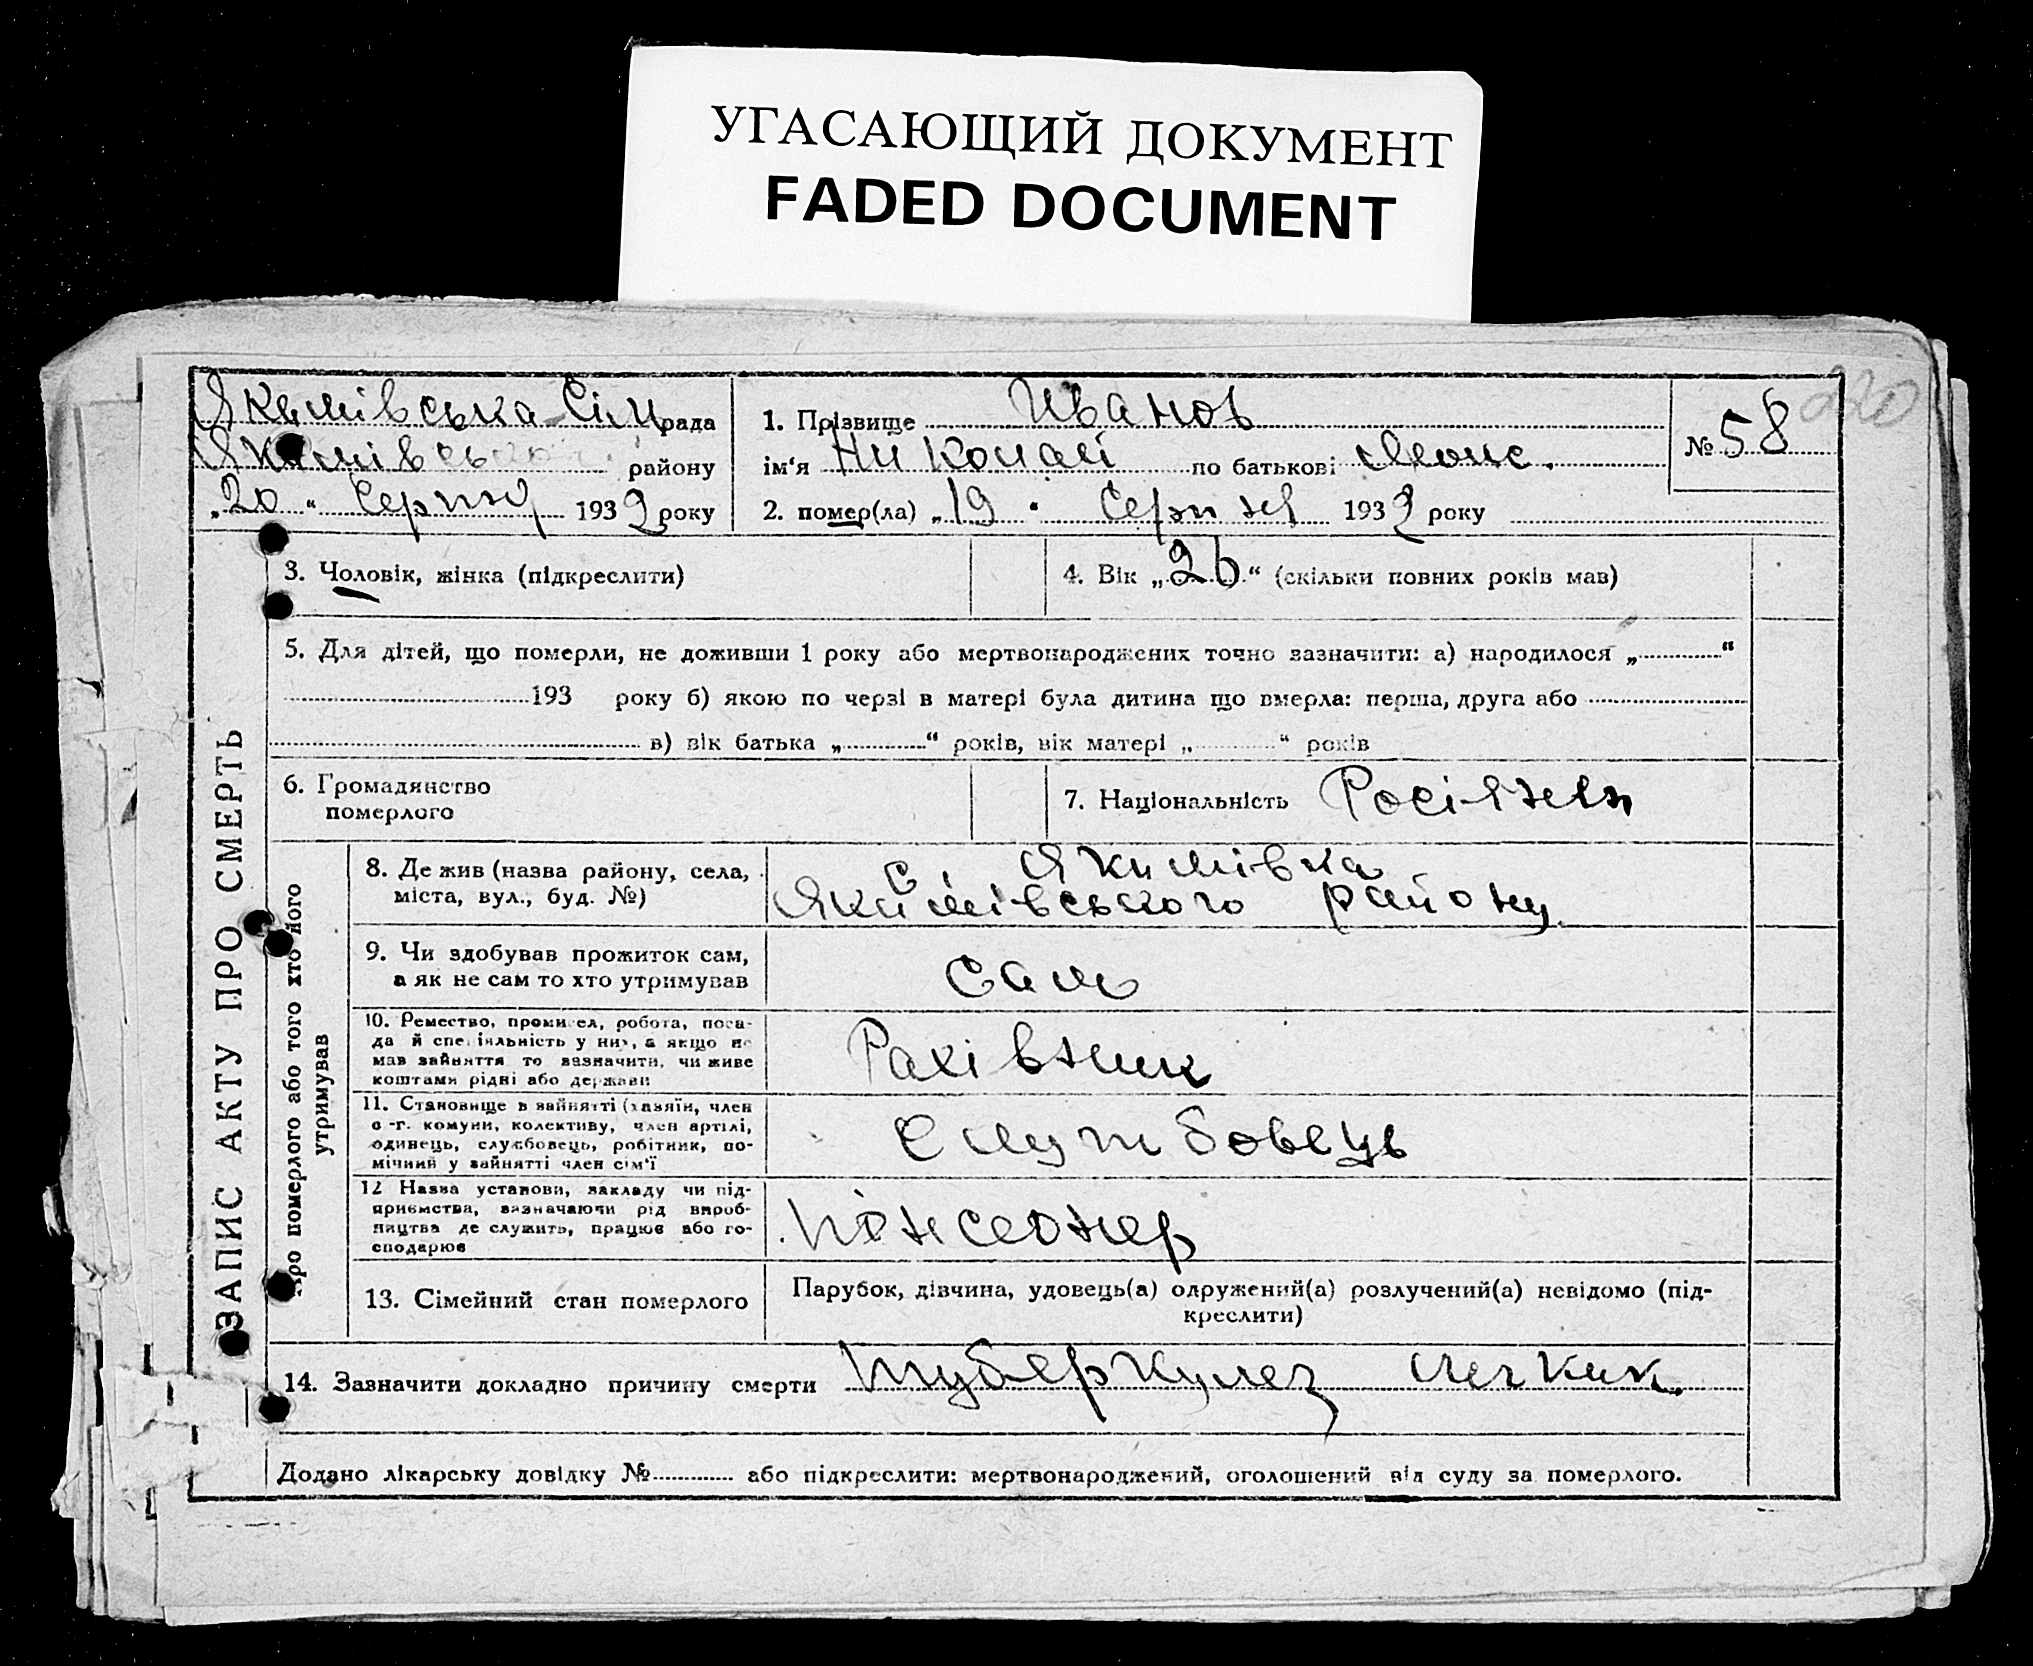 УГАСАЮЩИЙ ДОКУМЕНТ
FADED DOCUMENT
220
Якимівська Сіл рада
Якимівського району
„20“ Серпня 1932 року
1. Прізвище Иванов
ім‘я Николай по батькові
2. помер(ла) „19“ Серпня 1932 року
№ 58
ЗАПИС АКТУ ПРО СМЕРТЬ
3. Чоловік, жінка (підкреслити)
4. Вік „26“ (скільки повних років мав)
5. Для дітей, що померли, не доживши 1 року або мертвонароджених точно зазначити: а) народилося „ “
193 року б) якою по черзі в матері була дитина що вмерла: перша, друга або
в) вік батька „ “ років, вік матері „ “ років
6. Громадянство
померлого
7. Національність Росіянен
Про померлого або того хто його
утримував
8. Де жив (назва району, села,
міста, вул., буд. №)
с. Якимівка
Якимівського району
9. Чи здобував прожиток сам,
а як не сам то хто утримував
сам
10. Ремество, промисел, робота, поса-
да й спеціяльність у них, а якщо не
мав зайняття то зазначити, чи живе
коштами рідні або держави
Рахівник
11. Становище в зайнятті (хазяїн, член
с.-г. комуни, колективу, член артілі,
одинець, службовець, робітник, по-
мічний у зайнятті член сім‘ї
Службовець
12 Назва установи, закладу чи під-
приємства, зазначаючи рід вироб-
ництва де служить, працює або го-
сподарює
Пенсеонер
13. Сімейний стан померлого
Парубок, дівчина, удовець(а) одружений(а) розлучений(а) невідомо (під-
креслити)
14. Зазначити докладно причину смерти Туберкулез легких.
Додано лікарську довідку № або підкреслити: мертвонароджений, оголошений від суду за померлого.